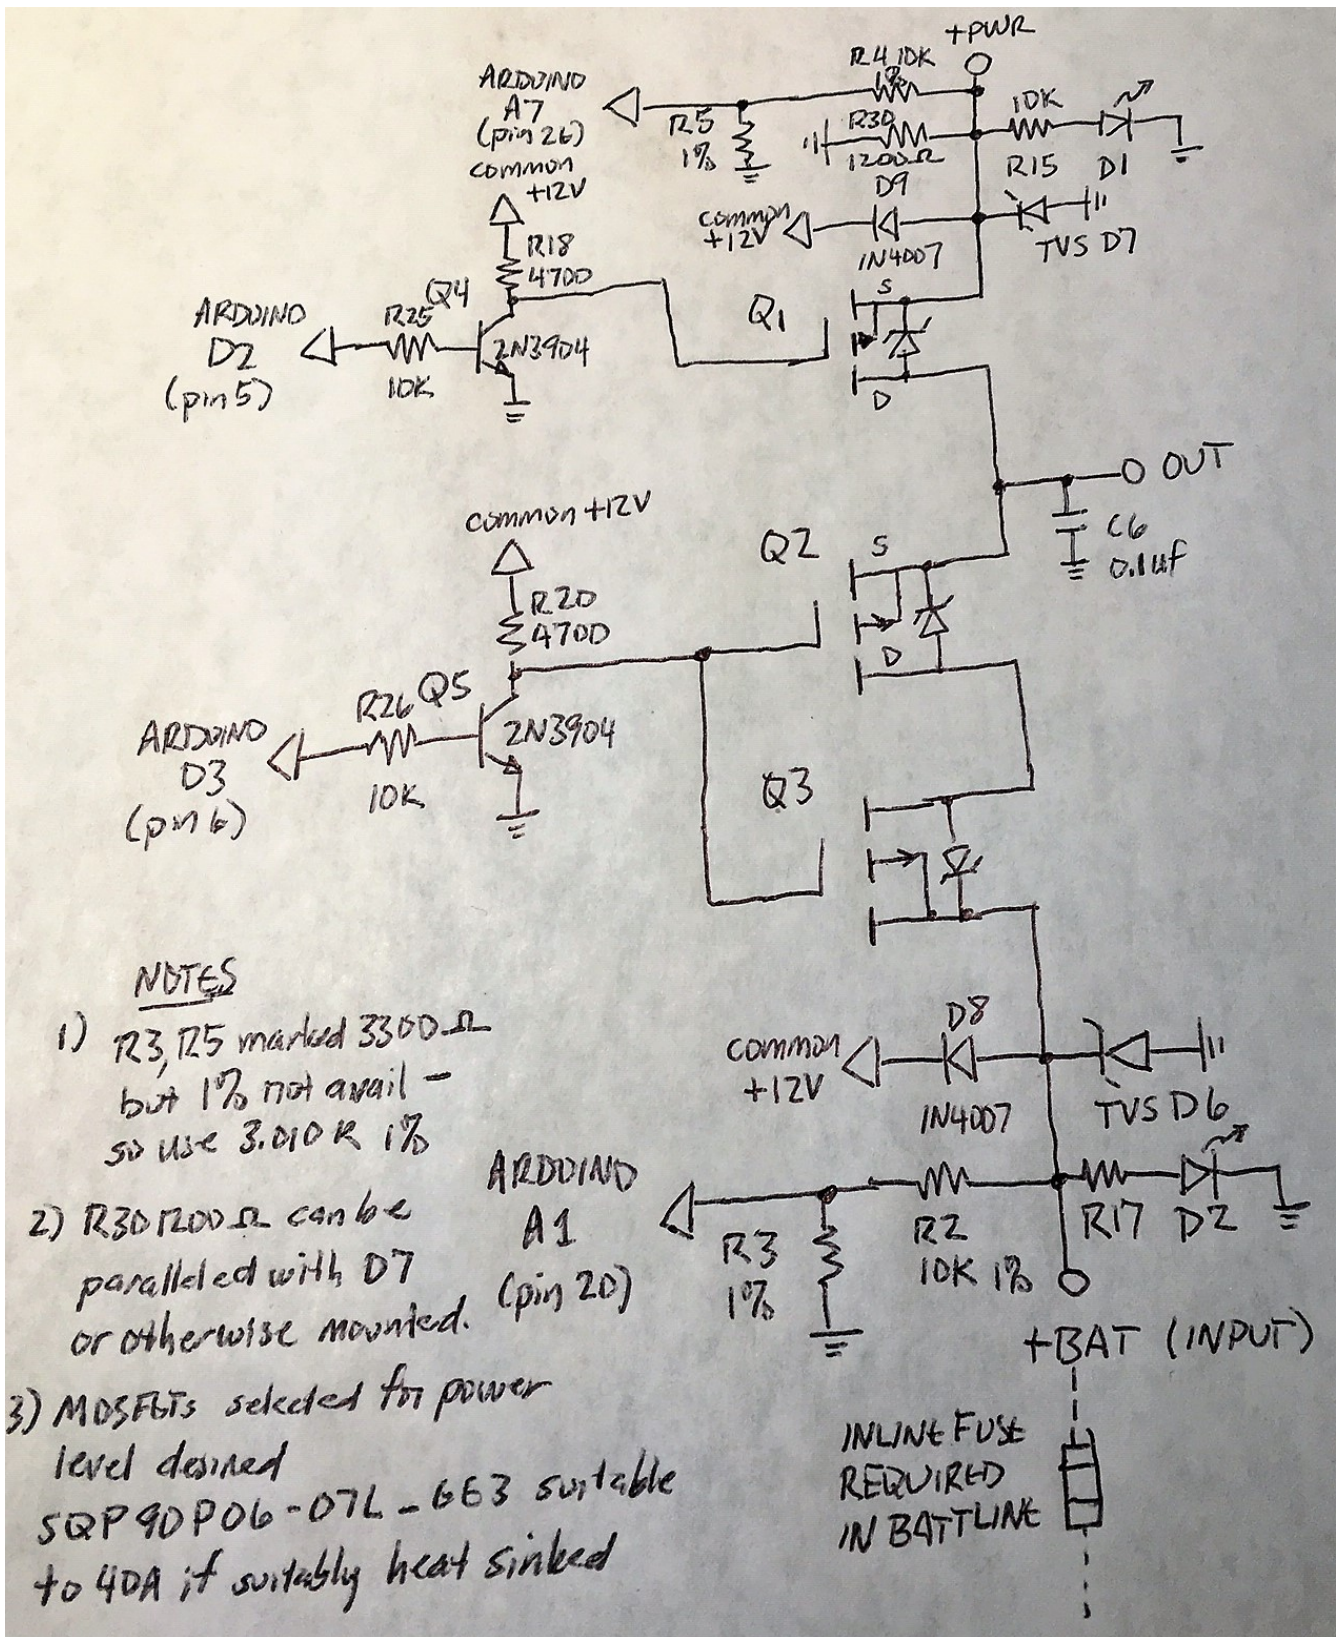 +PWR
R4 10K
1%
ARDUINO
A7
(pin 26)
R5
1%
R30
1200Ω
10K
R15
D1
common
+12V
D9
common
+12V
1N4007
TVS D7
R18
4700
Q4
ARDUINO
D2
(pin 5)
R25
10K
2N3904
Q1
S
D
OUT
C6
0.1uf
common +12V
Q2
S
D
R20
4700
R26
Q5
ARDUINO
D3
(pin 6)
10K
2N3904
Q3
NOTES
1) R3, R5 marked 3300Ω
but 1% not avail -
so use 3.010K 1%
2) R30 1200Ω can be
paralleled with D7
or otherwise mounted.
3) MOSFETs selected for power
level desired
SQP90P06-07L_GE3 suitable
to 40A if suitably heat sinked
D8
common
+12V
1N4007
TVS D6
ARDUINO
A1
(pin 20)
R3
1%
R2
10K 1%
R17
D2
+BAT (INPUT)
INLINE FUSE
REQUIRED
IN BATT LINE